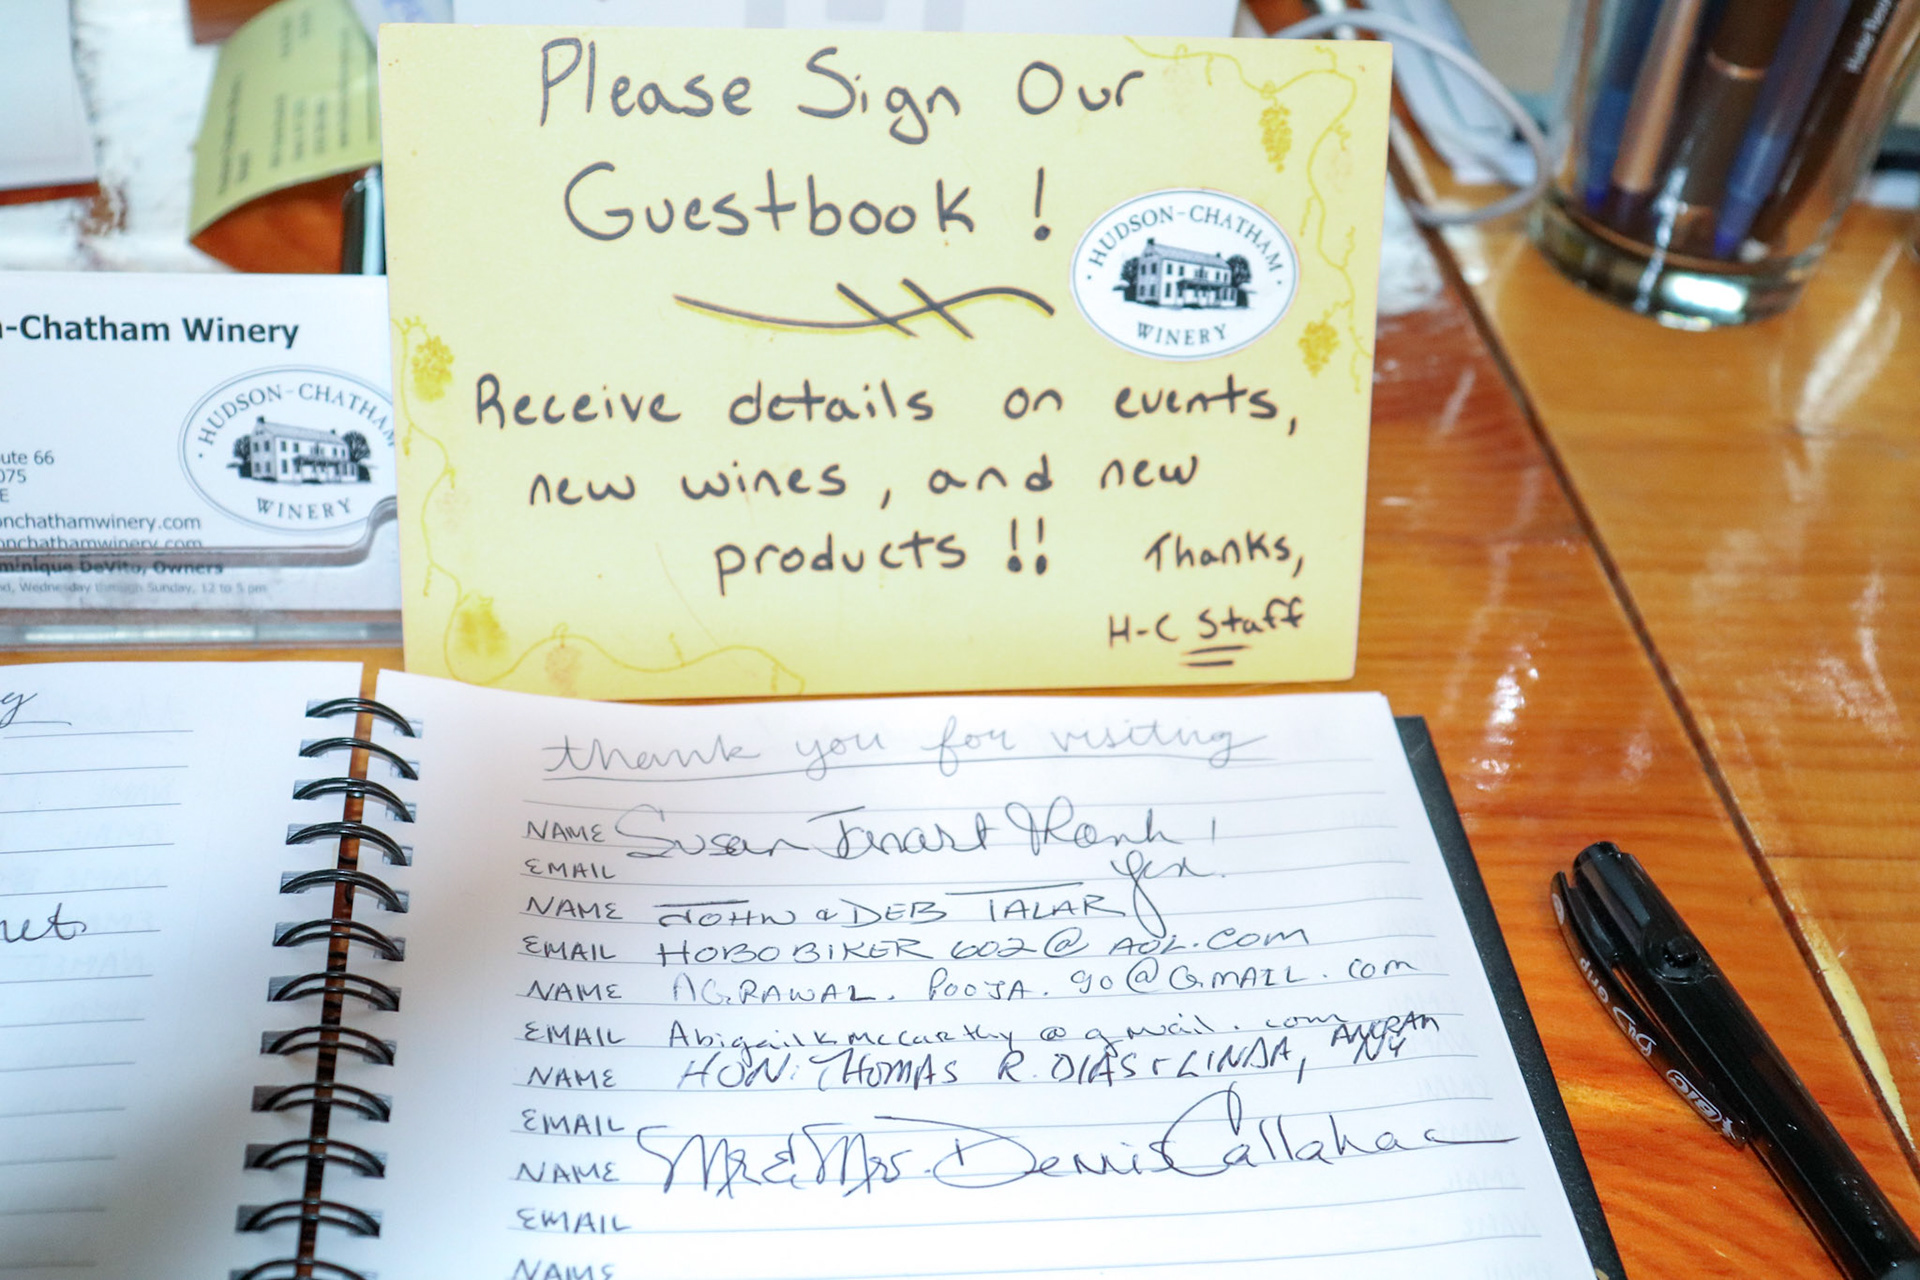 Please Sign Our
Guestbook !
HUDSON-CHATHAM
WINERY
Receive details on events,
new wines, and new
products !! Thanks,
H-C Staff
-Chatham Winery
ute 66
075
E
HUDSON-CHATHAM
WINERY
nchathamwinery.com
nchathamwinery.com
minique DeVito, Owners
Wednesday through Sunday, 12 to 5 pm
thank you for visiting
NAME Susan
EMAIL
NAME JOHN & DEB TALAR
EMAIL HOBOBIKER602@AOL.COM
NAME AGRAWAL.POOJA.90@GMAIL.com
EMAIL Abigailkmccarthy@gmail.com
NAME HON. THOMAS R. DIAS & LINDA, ANCRAM NY
EMAIL
NAME Mr & Mrs. Dennis Callahan
EMAIL
NAME
BIC